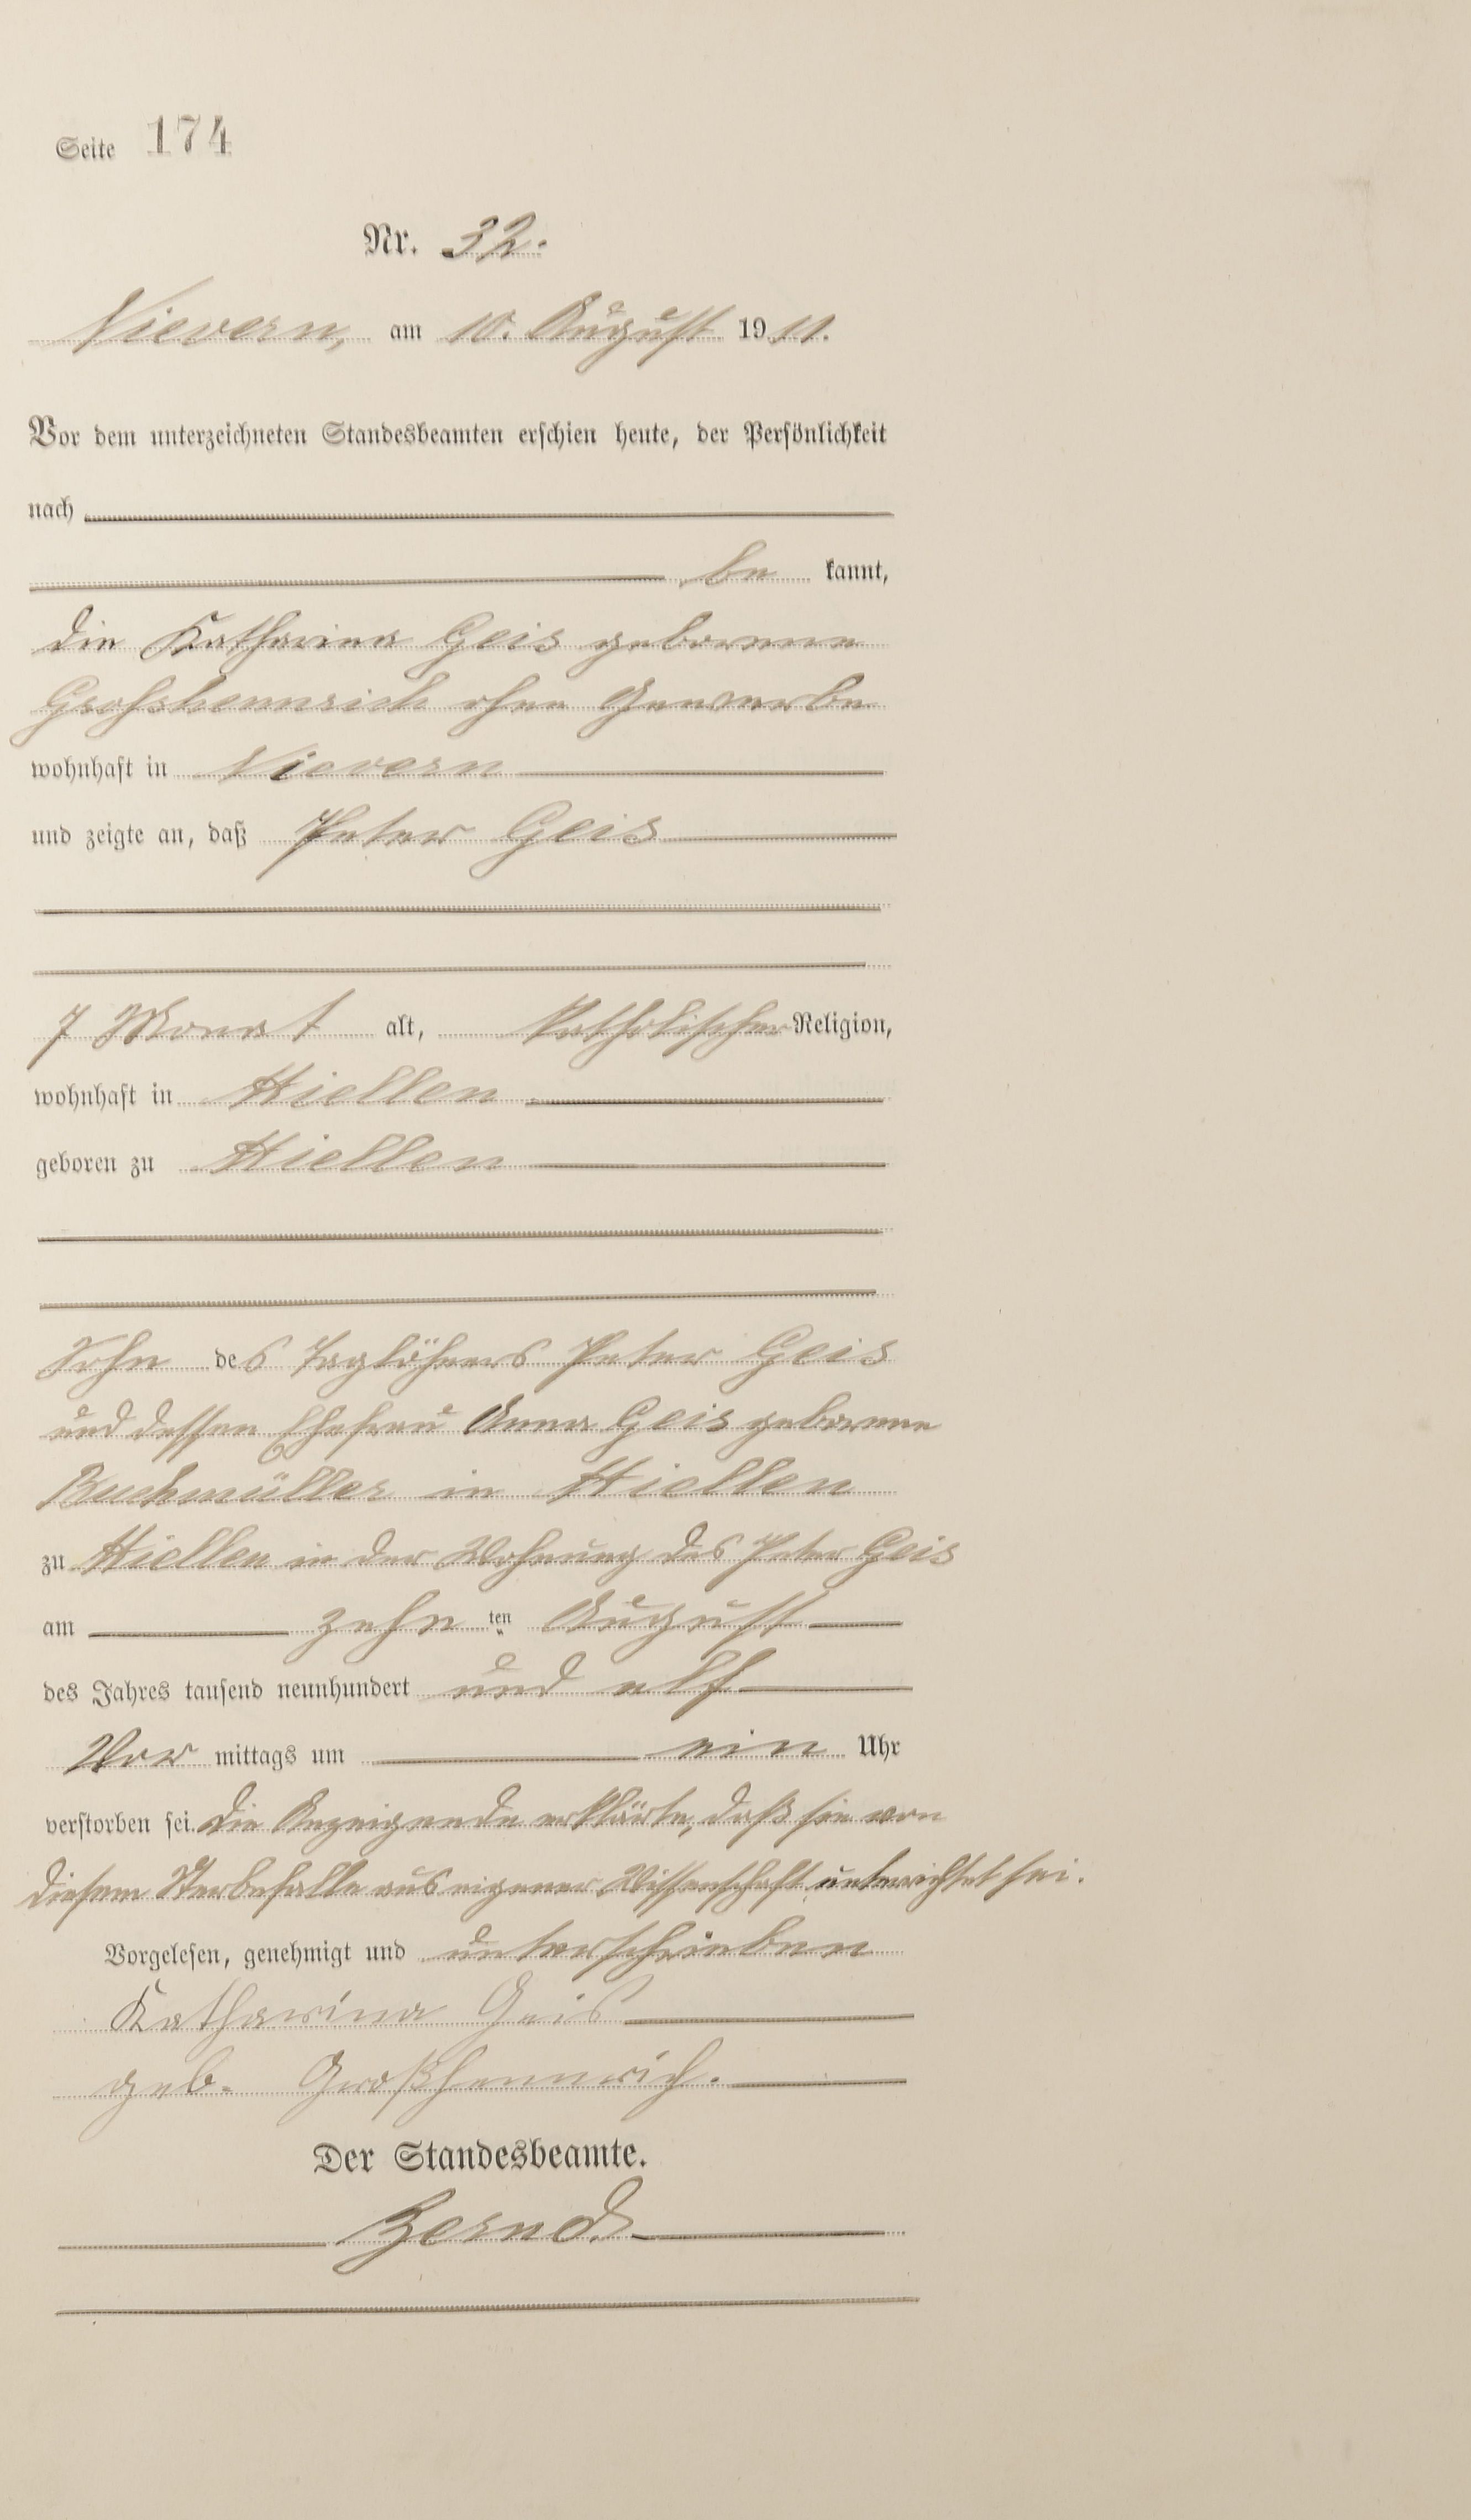 Seite 174
Nr. 32.
Nievern, am 10. August 1911.
Vor dem unterzeichneten Standesbeamten erschien heute, der Persönlichkeit
nach
be kannt,
die Katharina Geis geborenne
Grofshennrich ohne Gewerbe
wohnhaft in Nievern
und zeigte an, daß Peter Geis
7 Monat alt, katholischer Religion,
wohnhaft in Miellen
geboren zu Miellen
Sohn des Taglöhners Peter Geis
und dessen Ehefrau Anna Geis geborenne
Buchmüller in Miellen
zu Miellen in der Wohnung des Peter Geis
am zehn ten August
des Jahres tausend neunhundert und elf
Vor mittags um ein Uhr
verstorben sei. Die Anzeigende erklärte, daß sie von
diesem Sterbefalle aus eigener Wissenschaft unterrichtet sei.
Vorgelesen, genehmigt und unterschrieben
Katharina Geis
geb. Großhennrich.
Der Standesbeamte.